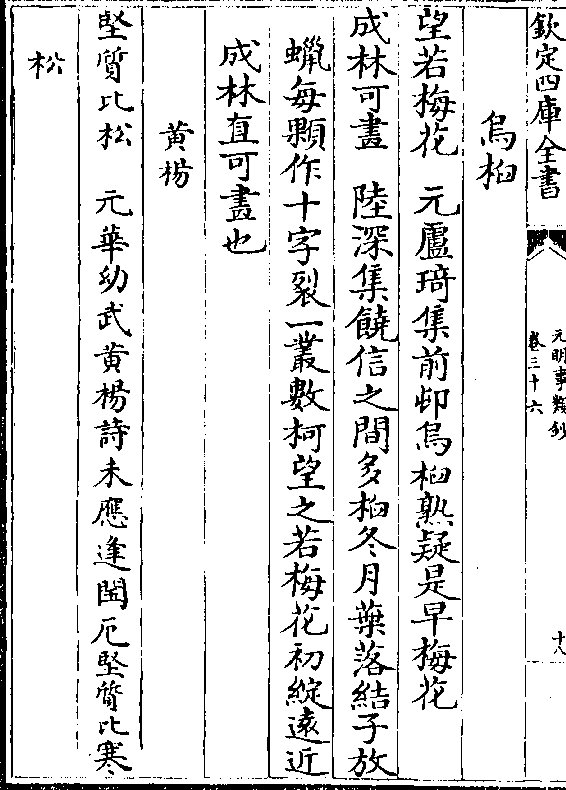 欽定四庫全書
元明事類鈔
卷三十六
十八
烏桕
望若梅花　元盧琦集前邨烏桕熟疑是早梅花
成林可畫　陸深集饒信之間多桕冬月葉落結子放
蠟每顆作十字裂一叢數柯望之若梅花初綻遠近
成林直可畫也
黄楊
堅質比松　元華幼武黄楊詩未應逢閏厄堅質比寒
松